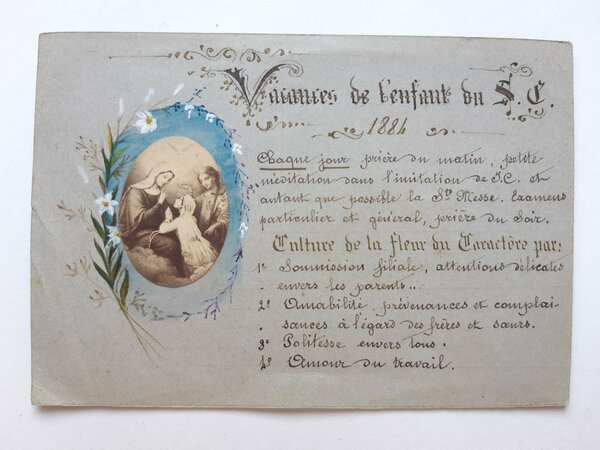 Vacances de l'enfant du S. C.
1884
Chaque jour prière du matin, petite
méditation dans l'imitation de J.C. et
autant que possible la Ste Messe. Examens
particulier et général, prière du Soir.
Culture de la fleur du Caractère par:
1º Soumission filiale, attentions délicates
- envers les parents...
2º Amabilité, prévenances et complai-
- sances à l'égard des frères et sœurs.
3º Politesse envers tous.
4º Amour du travail.